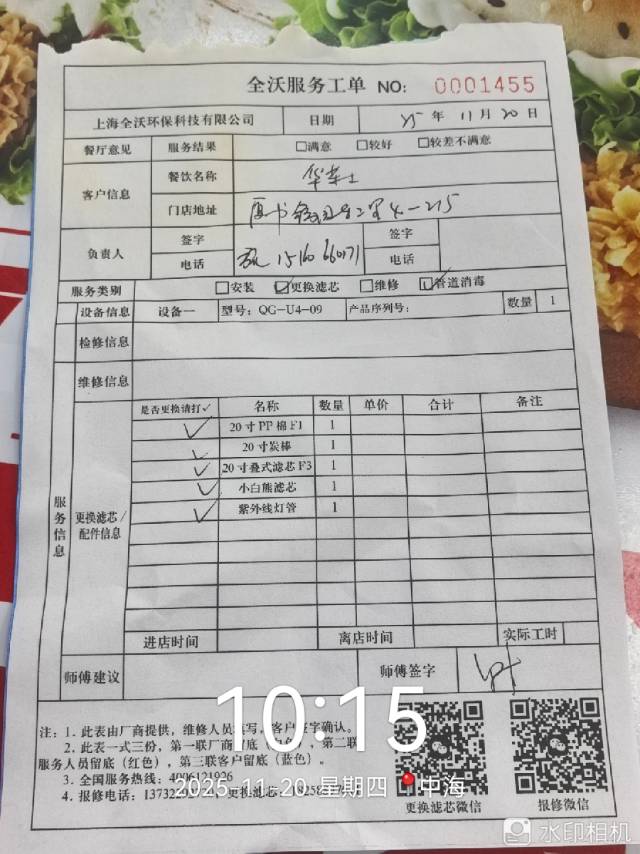 全沃服务工单 NO: 0001455
上海全沃环保科技有限公司 日期 25 年 11 月 20 日
餐厅意见 服务结果 □满意 □较好 □较差不满意
客户信息 餐饮名称 华莱士
门店地址 215
负责人 签字 签字
电话 电话
服务类别 □安装 ☑更换滤芯 □维修 ☑管道消毒
设备信息 设备一 型号: QG-U4-09 产品序列号: 数量 1
检修信息
维修信息
服务信息
更换滤芯/配件信息
是否更换请打✓ 名称 数量 单价 合计 备注
✓ 20寸PP棉F1 1
✓ 20寸炭棒 1
✓ 20寸叠式滤芯F3 1
✓ 小白熊滤芯 1
✓ 紫外线灯管 1
进店时间 离店时间 实际工时
师傅建议 师傅签字
注: 1. 此表由厂商提供, 维修人员填写, 客户签字确认。
2. 此表一式三份, 第一联厂商留底 (白色), 第二联
服务人员留底 (红色), 第三联客户留底 (蓝色)。
3. 全国服务热线: 4006121926
4. 报修电话: 更换滤芯:
更换滤芯微信 报修微信
10:15
2025.11.20 星期四 中海
水印相机